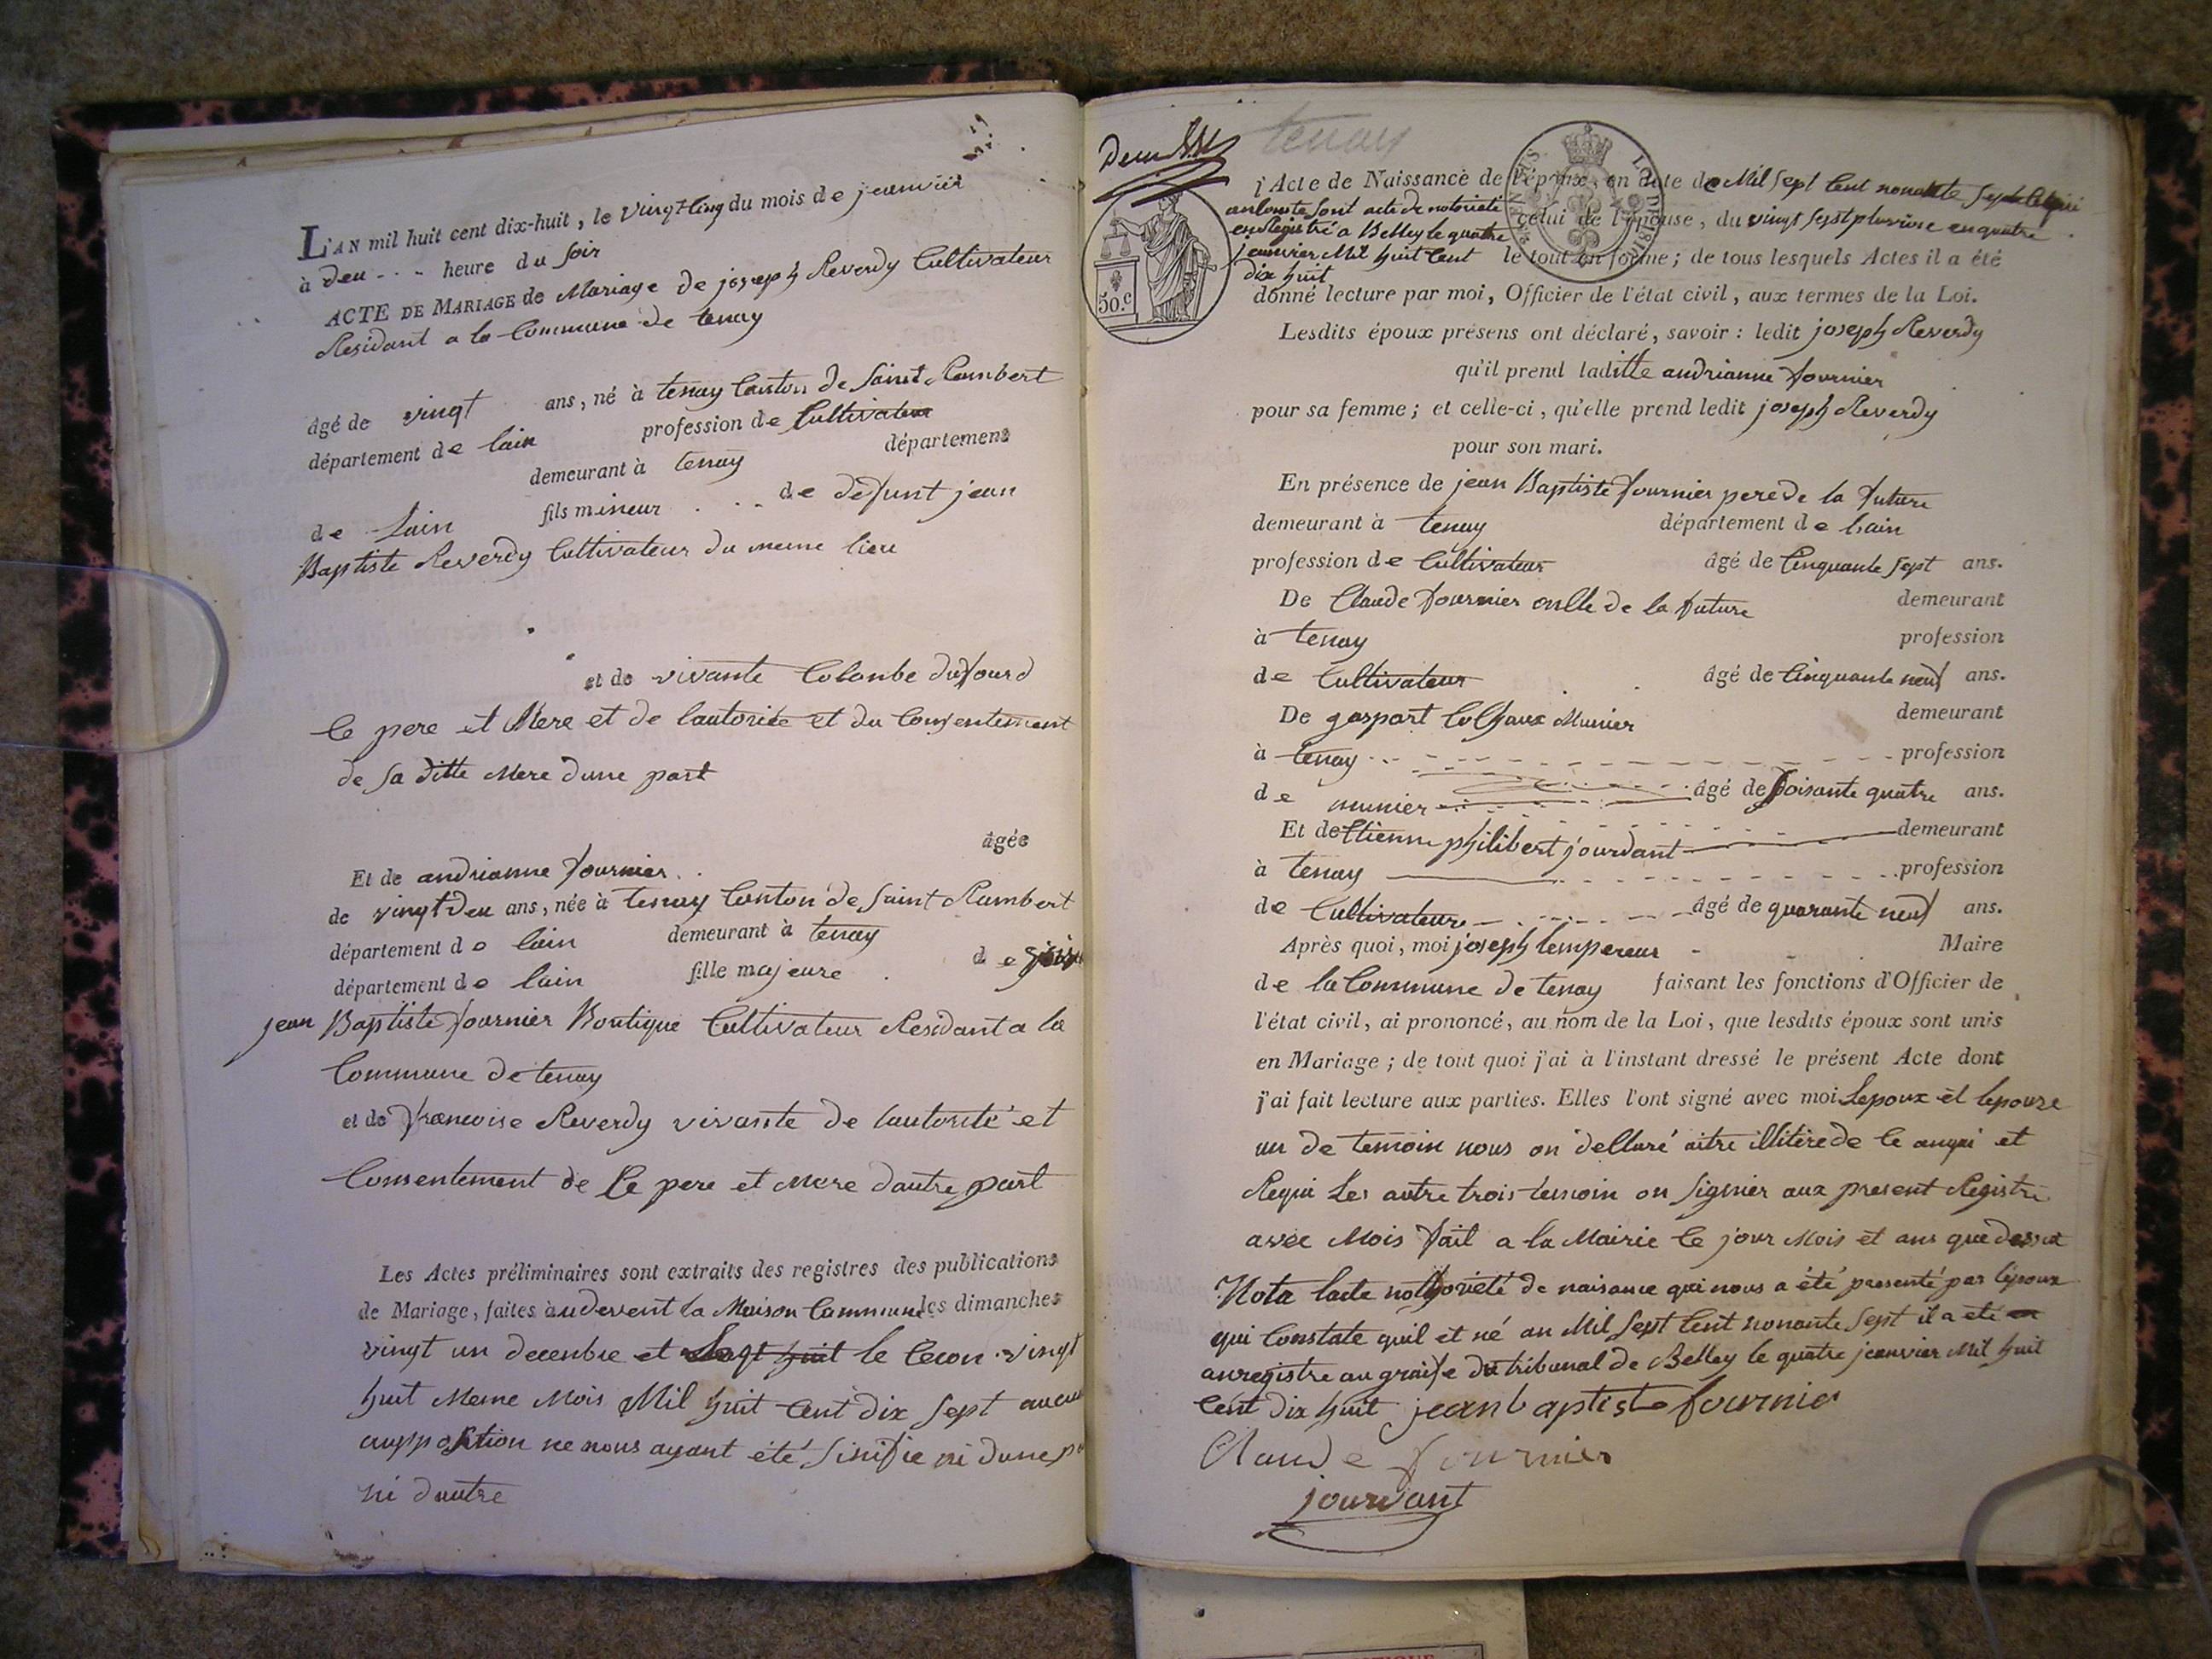 L'AN mil huit cent dix-huit, le vingt Cinq du mois de jeanvier
à deu - - - heure du soir
ACTE DE MARIAGE de Mariage de joseph Reverdy Cultivateur
Residant a la Commune de tenay
âgé de vingt ans, né à tenay Canton de Saint Rambert
département de lain profession de Cultivateur
demeurant à tenay département
de Lain fils mineur de defunt jean
Baptiste Reverdy Cultivateur du meme lieu
et de vivante Colonbe dufourd
Ce pere et Mere et de lautorite et du Consentement
de sa ditte Mere dune part
Et de andrianne fournier âgée
de vingt deu ans, née à tenay Canton de Saint Rambert
département de lain demeurant à tenay
département de lain fille majeure de
jean Baptiste fournier Boutique Cultivateur Residant a la
Commune de tenay
et de francoise Reverdy vivante de lautorité et
Consentement de Ce pere et Mere dautre part
Les Actes préliminaires sont extraits des registres des publications
de Mariage, faites au devent la Maison Commune les dimanches
vingt un decenbre et le Cecon vingt
huit Meme Mois Mil huit Cent dix sept aucun
aupposition ne nous ayant eté sinifie ni dune
ni dautre
deux
tenay
1 Acte de Naissance de l'époux, en date de Mil sept Cent nonante sept
anconste sont acte de notorieté celui de l'épouse, du vingt sept pluviose en quatre
enRegistré a Belley le quatre
jeanvier Mil huit Cent le tout en forme; de tous lesquels Actes il a été
dix huit
donné lecture par moi, Officier de l'état civil, aux termes de la Loi.
50.c
Lesdits époux présens ont déclaré, savoir: ledit joseph Reverdy
qu'il prend laditte andrianne fournier
pour sa femme; et celle-ci, qu'elle prend ledit joseph Reverdy
pour son mari.
En présence de jean Baptiste fournier pere de la future
demeurant à tenay département de Lain
profession de Cultivateur âgé de Cinquante sept ans.
De Claude fournier onlle de la future demeurant
à tenay profession
de Cultivateur âgé de Cinquante neuf ans.
De gaspart Colhaux Munier demeurant
à tenay profession
de munier âgé de soisante quatre ans.
Et de Etienne philibert jourdant demeurant
à tenay profession
de Cultivateur âgé de quarante neuf ans.
Après quoi, moi joseph lempereur Maire
de la Commune de tenay faisant les fonctions d'Officier de
l'état civil, ai prononcé, au nom de la Loi, que lesdits époux sont unis
en Mariage; de tout quoi j'ai à l'instant dressé le présent Acte dont
j'ai fait lecture aux parties. Elles l'ont signé avec moi Lepoux et lepouse
un de temoin nous on dellaré aitre illitere de Ce anqui et
Requi Les autre trois temoin on signier aux present Registre
avec Mois fait a la Mairie Ce jour Mois et ans que dessus
Nota lacte nothorieté de naisance qui nous a été presenté par lépoux
qui Constate quil et né an Mil sept Cent nonante sept il a eté
anregistre au graife du tribunal de Belley le quatre jeanvier Mil huit
Cent dix huit jean baptiste fournier
Claude fournier
jourdant